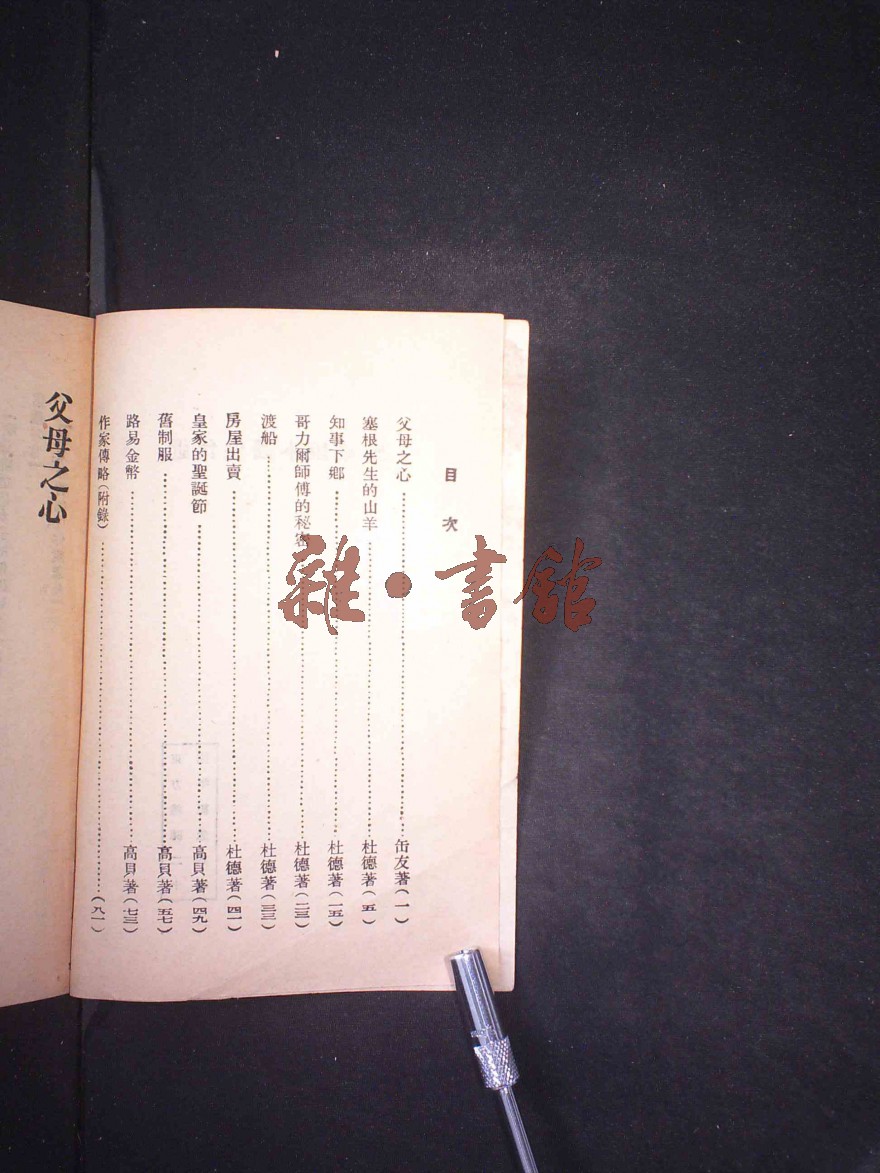 目次
父母之心……缶友著(一)
塞根先生的山羊……杜德著(五)
知事下鄉……杜德著(一五)
哥力爾師傅的秘密……杜德著(二三)
渡船……杜德著(三三)
房屋出賣……杜德著(四一)
皇家的聖誕節……高貝著(四九)
舊制服……高貝著(五七)
路易金幣……高貝著(七三)
作家傳略(附錄)……(八一)
父母之心
雜·書館